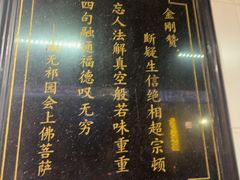 金剛赞
断疑生信绝相超宗顿
忘人法解真空般若味重重
四句融通福德叹无穷
无祁园会上佛菩萨